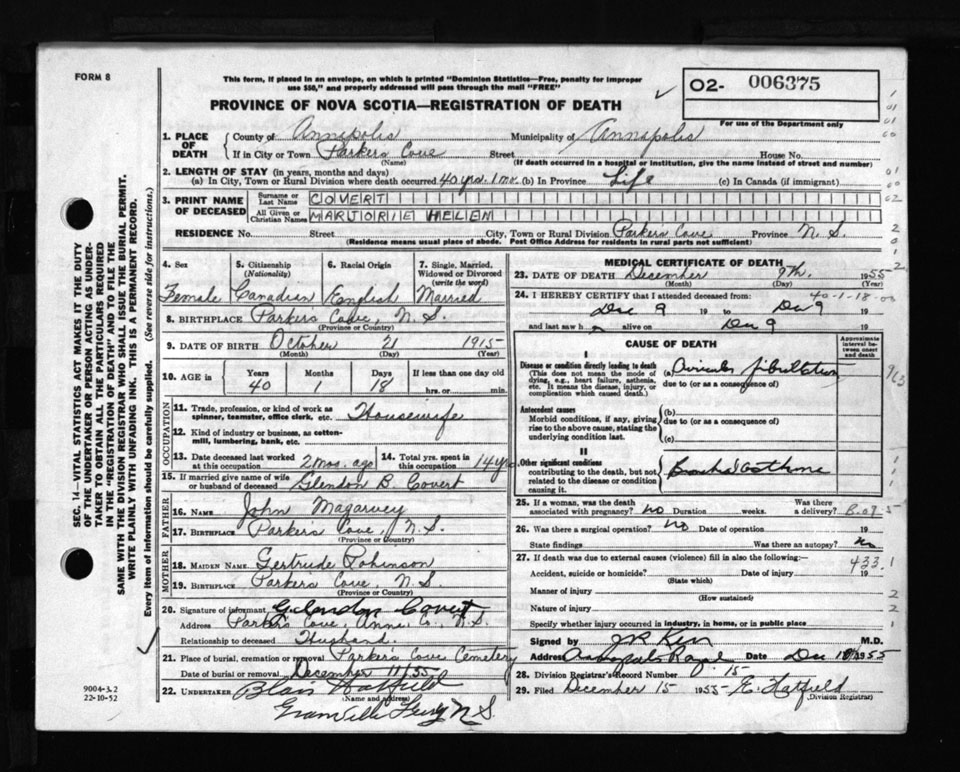 FORM 8
This form, if placed in an envelope, on which is printed "Dominion Statistics—Free, penalty for improper
use $50," and properly addressed will pass through the mail "FREE"
02- 006375
For use of the Department only
PROVINCE OF NOVA SCOTIA—REGISTRATION OF DEATH
1. PLACE OF DEATH { County of Annapolis Municipality of Annapolis
If in City or Town Parkers Cove Street House No.
(Name) (If death occurred in a hospital or institution, give the name instead of street and number)
2. LENGTH OF STAY (in years, months and days)
(a) In City, Town or Rural Division where death occurred 40 yrs. 1 mo. (b) In Province Life (c) In Canada (if immigrant)
3. PRINT NAME OF DECEASED { Surname or Last Name COVERT
All Given or Christian Names MARJORIE HELEN
RESIDENCE No. Street City, Town or Rural Division Parkers Cove Province N. S.
(Residence means usual place of abode. Post Office Address for residents in rural parts not sufficient)
4. Sex 5. Citizenship (Nationality) 6. Racial Origin 7. Single, Married, Widowed or Divorced (write the word)
Female Canadian English Married
8. BIRTHPLACE Parkers Cove, N. S.
(Province or Country)
9. DATE OF BIRTH October 21 1915
(Month) (Day) (Year)
10. AGE in { Years Months Days If less than one day old
40 1 18 hrs. or min.
OCCUPATION
11. Trade, profession, or kind of work as
spinner, teamster, office clerk, etc. Housewife
12. Kind of industry or business, as cotton-
mill, lumbering, bank, etc.
13. Date deceased last worked at this occupation 2 mos. ago 14. Total yrs. spent in this occupation 14 yrs
15. If married give name of wife or husband of deceased Glendon B. Covert
FATHER
16. NAME John Magarvey
17. BIRTHPLACE Parkers Cove, N. S.
(Province or Country)
MOTHER
18. MAIDEN NAME Gertrude Robinson
19. BIRTHPLACE Parkers Cove, N. S.
(Province or Country)
20. Signature of informant Glendon Covert
Address Parkers Cove, Anna. Co., N. S.
Relationship to deceased Husband.
21. Place of burial, cremation or removal Parkers Cove Cemetery
Date of burial or removal December 11/55
22. UNDERTAKER Blair Hatfield
(Name and address)
Granville Ferry N S.
MEDICAL CERTIFICATE OF DEATH
23. DATE OF DEATH December 9th. 1955
(Month) (Day)
40-1-18-00
24. I HEREBY CERTIFY that I attended deceased from:
Dec 9 19 to Dec 9 19
and last saw h alive on Dec 9 19
CAUSE OF DEATH
Approximate interval between onset and death
I
Disease or condition directly leading to death
(This does not mean the mode of
dying, e.g., heart failure, asthenia,
etc. It means the disease, injury, or
complication which caused death.)
(a) Auricular fibrillation
due to (or as a consequence of)
Antecedent causes
Morbid conditions, if any, giving
rise to the above cause, stating the
underlying condition last.
(b)
due to (or as a consequence of)
(c)
II
Other significant conditions
contributing to the death, but not
related to the disease or condition
causing it.
Bronchial Asthma
25. If a woman, was the death associated with pregnancy? NO Duration weeks. Was there a delivery?
26. Was there a surgical operation? NO Date of operation 19
State findings Was there an autopsy? no
27. If death was due to external causes (violence) fill in also the following:—
433.1
Accident, suicide or homicide? Date of injury 19
(State which)
Manner of injury
(How sustained)
Nature of injury
Specify whether injury occurred in industry, in home, or in public place
Signed by M.D.
Address Annapolis Royal Date Dec 1955
28. Division Registrar's Record Number 15
29. Filed December 15 1955 E. Hatfield
(Division Registrar)
SEC. 14—VITAL STATISTICS ACT MAKES IT THE DUTY
OF THE UNDERTAKER OR PERSON ACTING AS UNDER-
TAKER TO OBTAIN ALL THE PARTICULARS REQUIRED
IN THE "REGISTRATION OF DEATH" AND TO FILE THE
SAME WITH THE DIVISION REGISTRAR WHO SHALL ISSUE THE BURIAL PERMIT.
WRITE PLAINLY WITH UNFADING INK. THIS IS A PERMANENT RECORD.
Every item of information should be carefully supplied. (See reverse side for instructions.)
9004-3.2
22-10-52